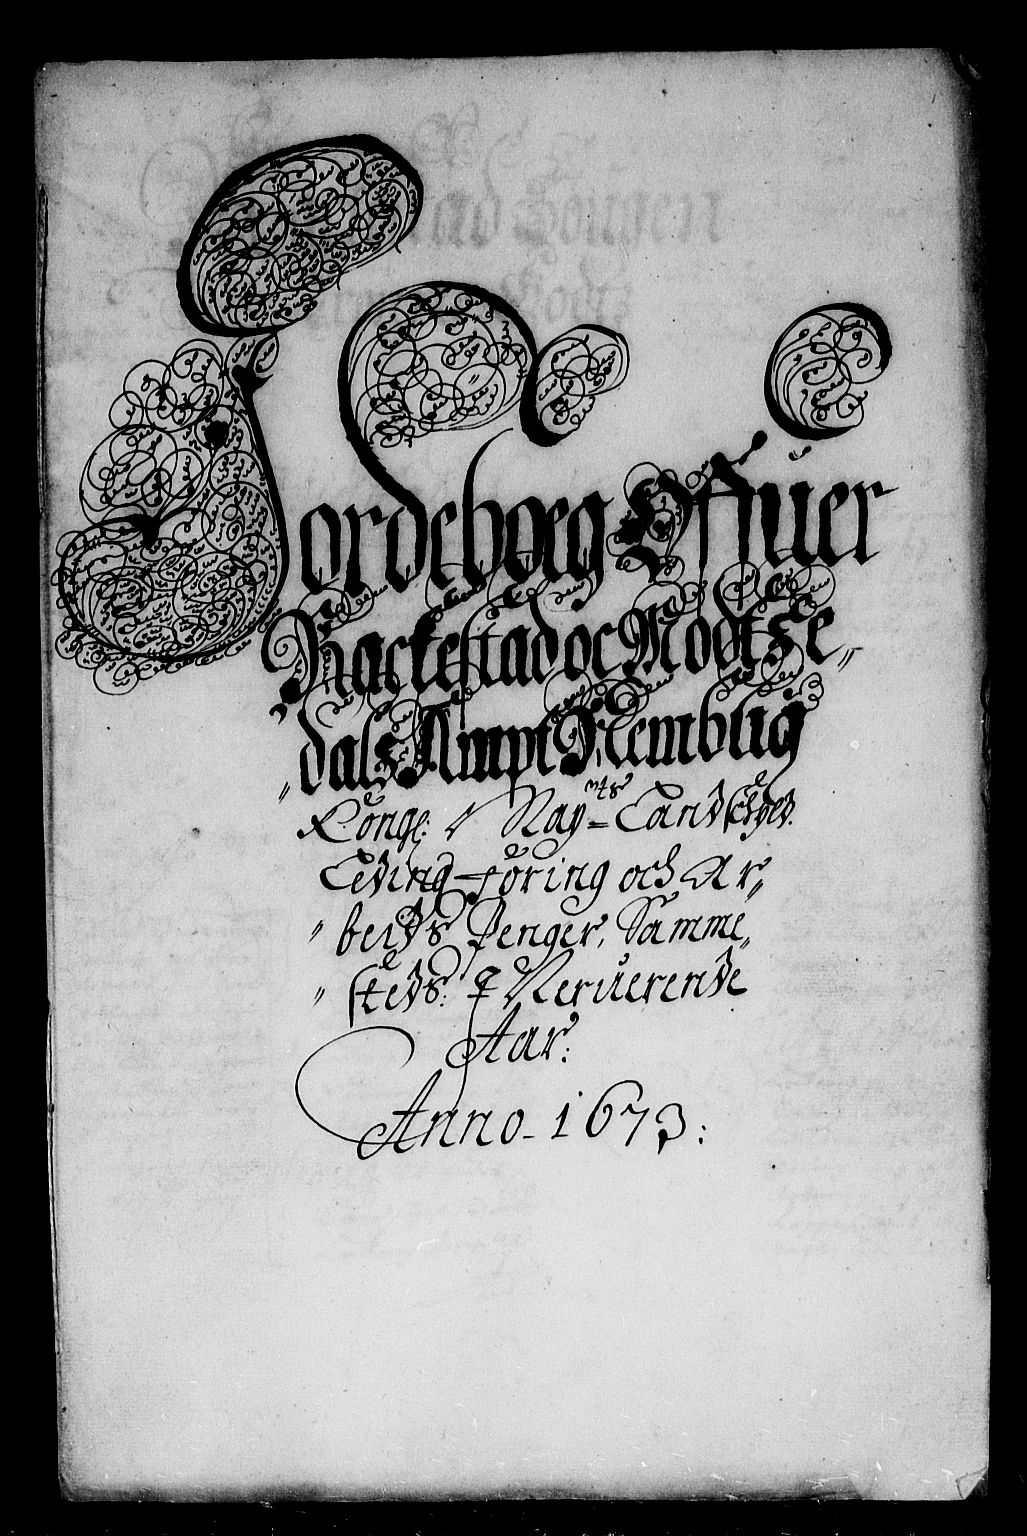 Jordeboeg Offuer
Rackestad oc Modtze„
„dalz Ampt Nemblig
Kongl: May^ts Landskyld.
Leding-föring och Ar„
„beids Penger, Samme„
„steds: p Neruerende
Aar:
Anno. 1673: